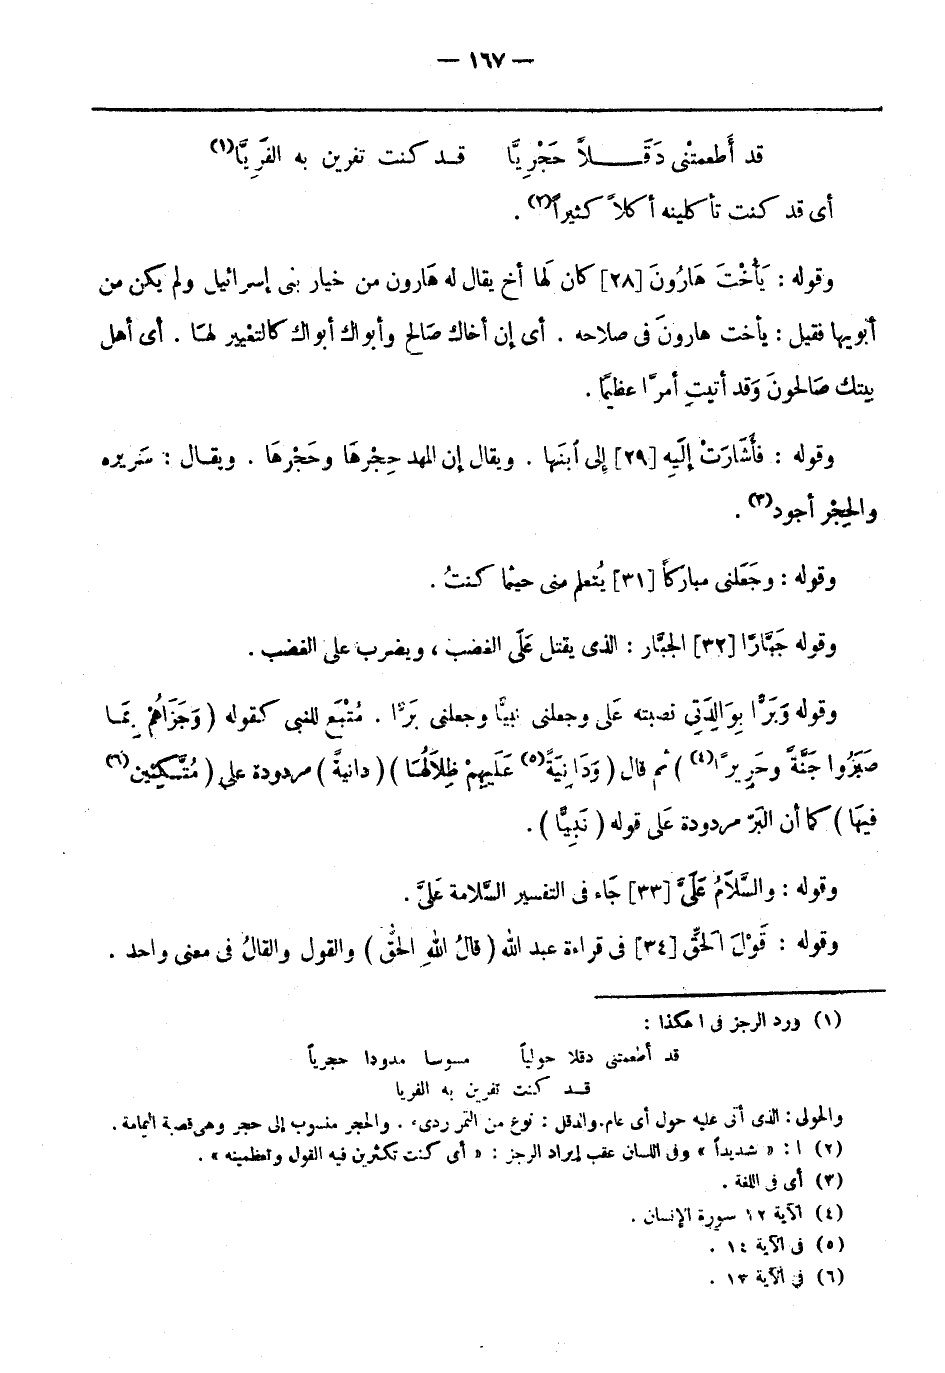 — ١٦٧ —
قد أَطعمتْنى دَقَـــلاً حَجْرِيًّا قـد كنت تفرين به الفَرِيَّا(١)
أى قد كنت تأكلينه أكلاً كثيراً(٢) .
وقوله : يَأُخْتَ هَارُونَ [٢٨] كان لها أخ يقال له هَارون من خيار بنى إسرائيل ولم يكن من
أبويها فقيل : يأخت هارونَ فى صلاحه . أى إن أخاك صَالح وأبواك أبواك كالتغيير لهـا . أى أهل
بيتك صَالحونَ وَقد أتيتِ أمرًا عظيمًا .
وقوله : فأَشَارَتْ إلَيهِ [٢٩] إِلى اَبنَها . ويقال إن المهد حِجْرهَا وحَجْرهَا . ويقـال : سَريره
والحِجْر أجود(٣) .
وقوله : وجَعَلنى مباركاً [٣١] يُتعلم منى حيثما كنتُ .
وقوله جَبَّارًا [٣٢] الجبَّار : الذى يقتل عَلَى الغضب ، ويضرب على الغضب .
وقوله وَبَرًّا بِوَالِدَتِى نصبته عَلى وجعلنى نبيًّا وجعلنى بَرًّا . مُتْبَع للنبى كقوله ( وَجَزَاهُمْ بِمَـا
صَبَرُوا جَنَّةً وحَرِيرًا(٤) ) ثم قال ( وَدَانِيَةً(٥) عَلَيهِمْ ظِلاَلُهَـا ) ( دانيةً ) مردودة على ( مُتَّكئِين(٦)
فيهَا ) كما أن البَرّ مردودة عَلى قوله ( نَبِيًّا ) .
وقوله : والسَّلاَمُ عَلَىَّ [٣٣] جَاء فى التفسير السَّلامة عَلىَّ .
وقوله : قَوْلَ اَلحَقِّ [٣٤] فى قراءة عبد الله ( قالُ اللهِ الحَقُّ ) والقول والقالُ فى معنى واحد .
(١) ورد الرجز فى ا هكذا :
قد أطعمتنى دقلا حولياً مسوسا مدودا حجرياً
قــد كنت تفرين به الفريا
والحولى : الذى أتى عليه حول أى عام. والدقل : نوع من التمر ردىء . والحجر منسوب إلى حجر وهى قصبة اليمامة .
(٢) ا : « شديداً » وفى اللسان عقب إيراد الرجز : « أى كنت تكثرين فيه القول وتعظمينه » .
(٣) أى فى اللغة .
(٤) الآية ١٢ سورة الإنسان .
(٥) فى الآية ١٤ .
(٦) فى الآية ١٣ .